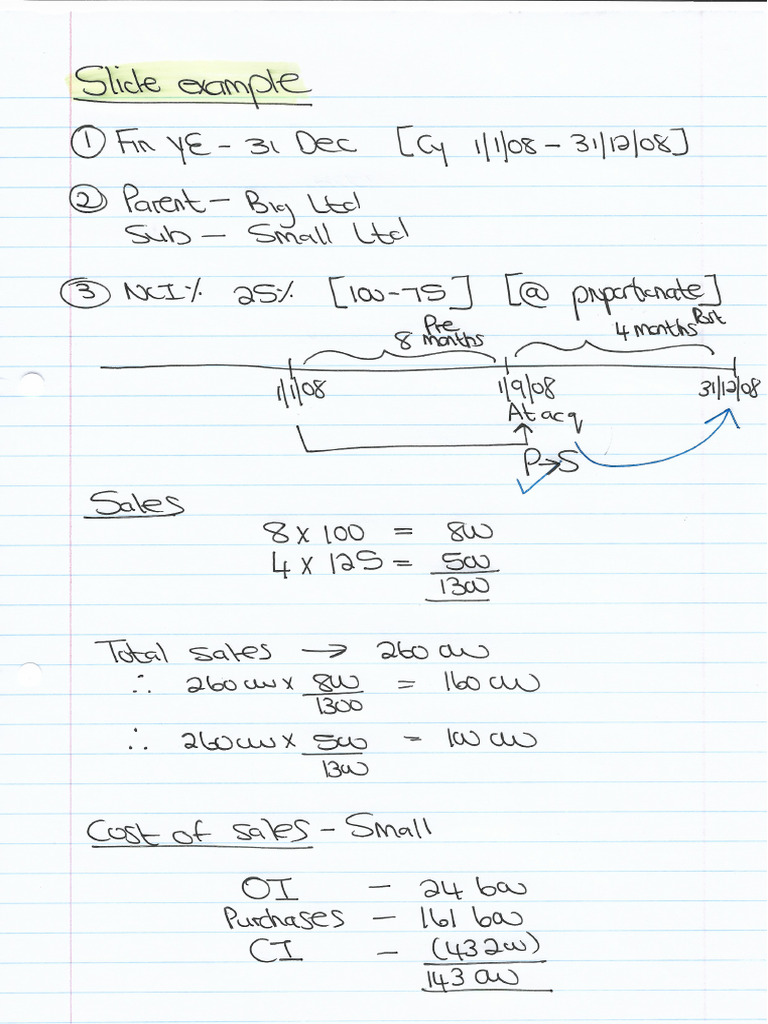 Slide example
① Fin YE - 31 Dec [Cy 1/1/08 - 31/12/08]
② Parent - Big Ltd
Sub - Small Ltd
③ NCI% 25% [100-75] [@ proportionate]
Pre Post
8 months 4 months
1/1/08 1/9/08 31/12/08
At acq
P→S
Sales
8 x 100 = 800
4 x 125 = 500
1300
Total sales → 260 000
∴ 260 000 x 800 = 160 000
1300
∴ 260 000 x 500 = 100 000
1300
Cost of sales - Small
OI - 24 600
Purchases - 161 600
CI - (43 200)
143 000